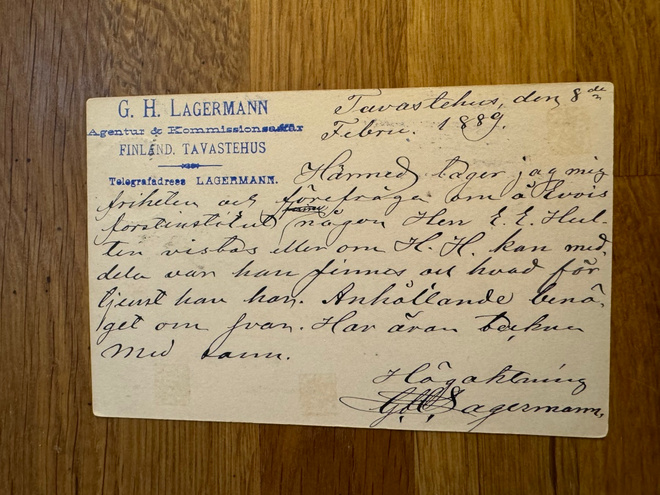 G. H. LAGERMANN
Agentur & Kommissionsaffär
FINLAND, TAVASTEHUS
Telegrafadress LAGERMANN.
Tavastehus, den 8de
Febru. 1889.
Härmed tager jag mig
friheten att förefråga om å Evois
forstinstitut någon Herr E. E. Hul-
tin vistas eller om H. H. kan med-
dela var han finnes och hvad för
tjenst han har. Anhållande benä-
get om svar. Har äran teckna
med sann.
Högaktning
G. H. Lagermann.